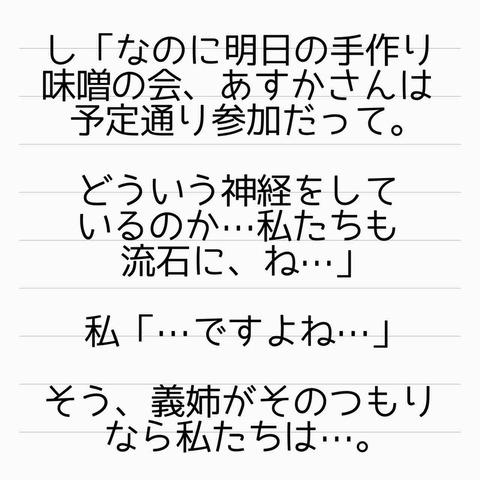 し「なのに明日の手作り
味噌の会、あすかさんは
予定通り参加だって。
どういう神経をして
いるのか…私たちも
流石に、ね…」
私「…ですよね…」
そう、義姉がそのつもり
なら私たちは…。